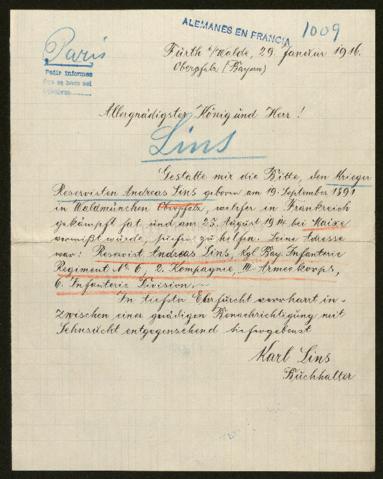 Paris
ALEMANES EN FRANCIA
1009
Pedir informes
Fürth a/Walde, 29. Januar 1916.
Oberpfalz (Bayern)
Allergnädigster König und Herr!
Lins
Gestatte mir die Bitte, den Krieger
Reservisten Andreas Lins geboren am 19. September 1891
in Waldmünchen Oberpfalz, welcher in Frankreich
gekämpft hat und am 25. August 1914 bei Maixe
vermißt wurde, suchen zu helfen. Seine Adresse
war: Reservist Andreas Lins, kgl. Bay. Infanterie
Regiment № 6, 2. Kompagnie, Armeekorps,
6. Infanterie Division.
In tiefster Ehrfurcht verharrt in-
zwischen einer gnädigen Benachrichtigung mit
Sehnsucht entgegensehend
Karl Lins
Buchhalter